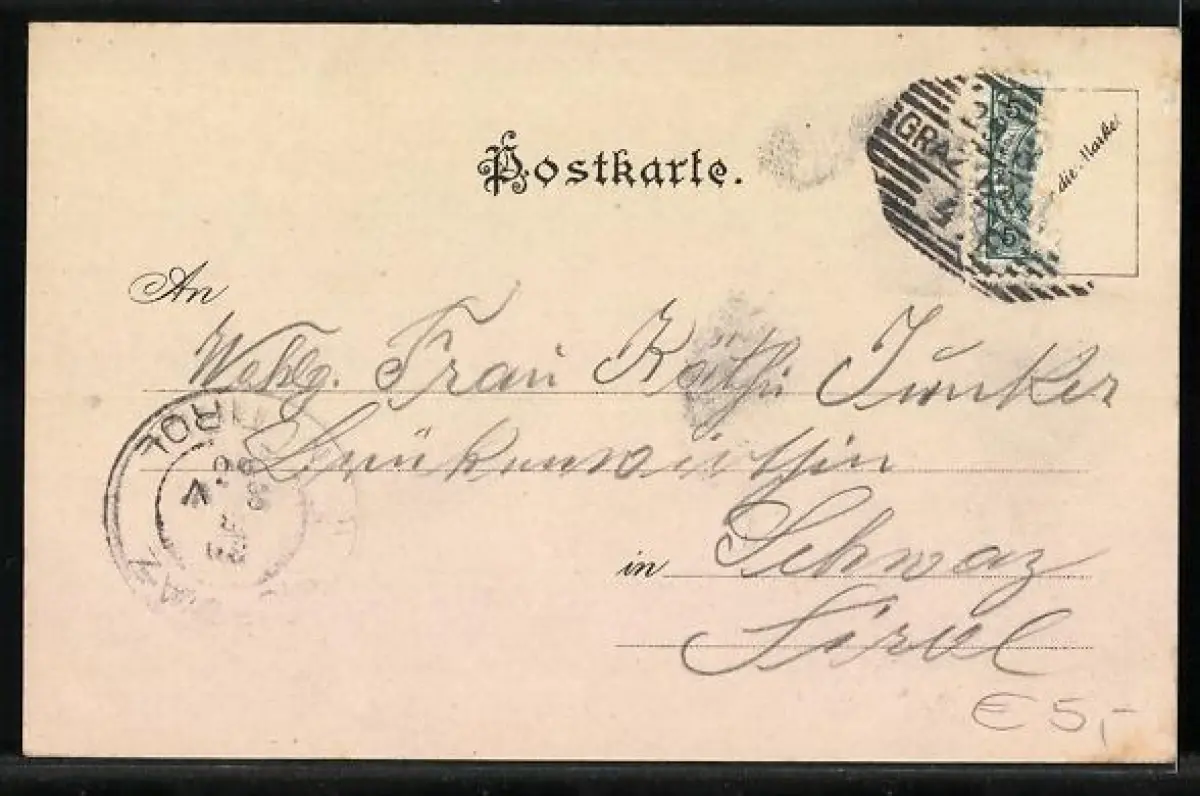 Postkarte.
GRAZ
5
5
die Marke.
An
Wohlg. Frau Käthi Junker
Brückenwirthin
in Schwaz
Tirol
TIROL
€ 5,-